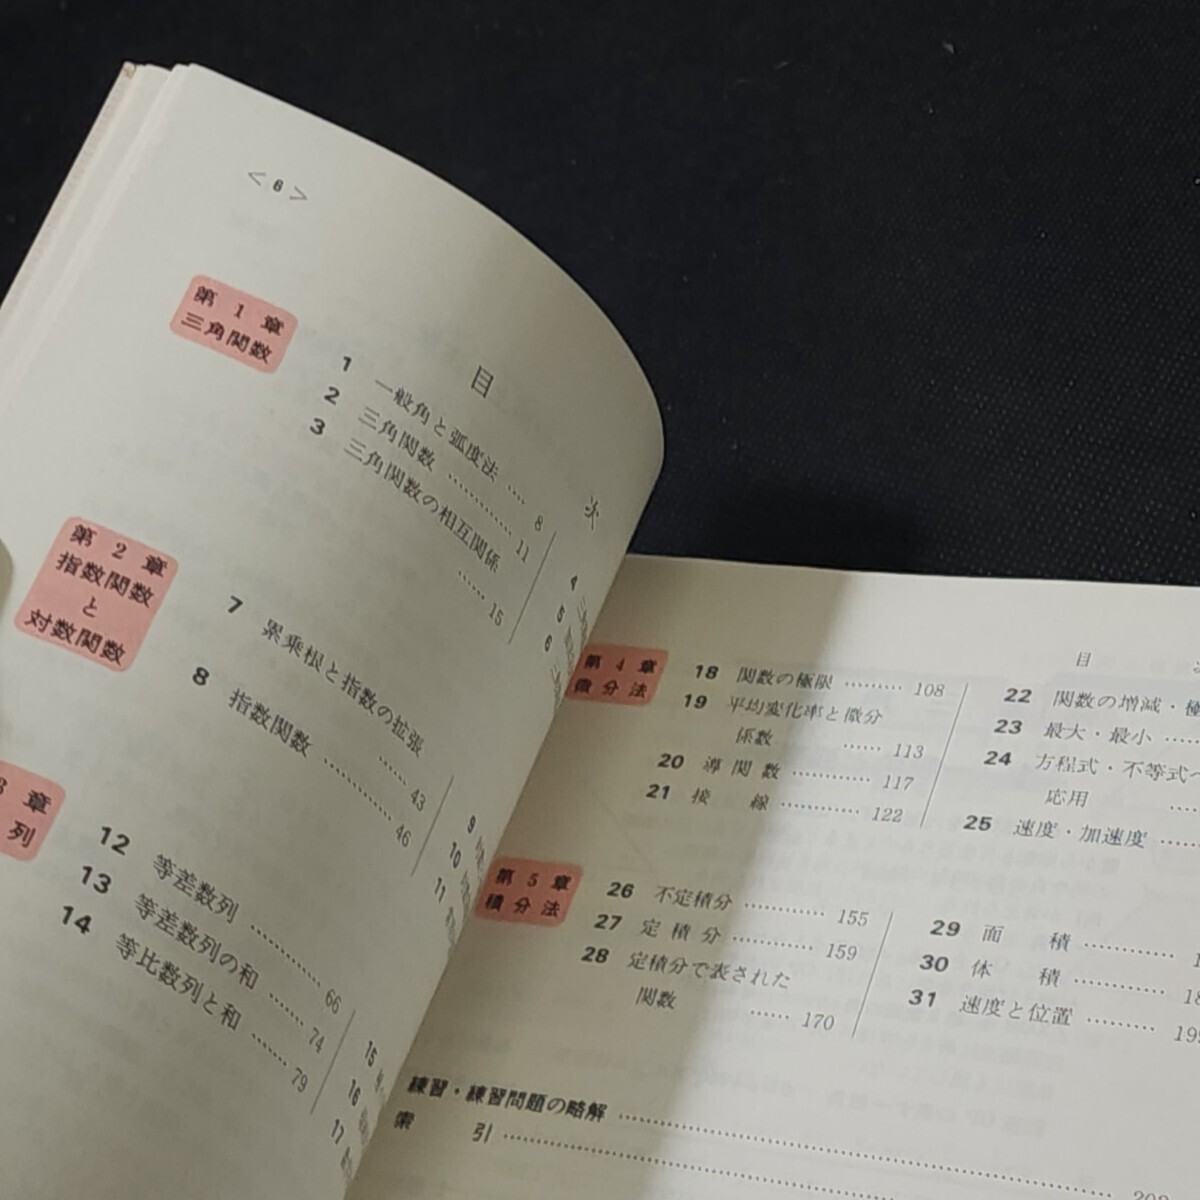 < 6 >
目 次
第 1 章
三角関数
1 一般角と弧度法 …… 8
2 三角関数 …………… 11
3 三角関数の相互関係
…… 15
4
5
6
第 2 章
指数関数
と
対数関数
7 累乗根と指数の拡張
…… 43
8 指数関数 …………… 46
9
10
11
章
列
12 等差数列 …………… 66
13 等差数列の和 …… 74
14 等比数列と和 …… 79
15
16
17
目
第 4 章
微分法
18 関数の極限 ……… 108
19 平均変化率と微分
係数 …… 113
20 導関数 ………… 117
21 接 線 ………… 122
22 関数の増減・
23 最大・最小 ……
24 方程式・不等式
応用 ……
25 速度・加速度 ……
第 5 章
積分法
26 不定積分 ………… 155
27 定積分 ………… 159
28 定積分で表された
関数 …… 170
29 面 積 …………
30 体 積 …………
31 速度と位置 ………
練習・練習問題の略解 ……………………
索 引 ……………………